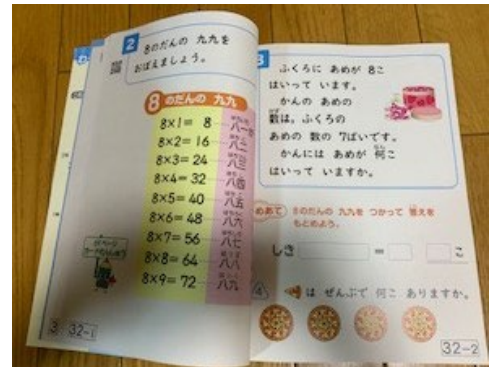 2
8のだんの 九九を
おぼえましょう。
8のだんの 九九
8×1= 8 八一
8×2=16 八二
8×3=24 八三
8×4=32 八四
8×5=40 八五
8×6=48 八六
8×7=56 八七
8×8=64 八八
8×9=72 八九
3 32-1
3
ふくろに あめが 8こ
はいって います。
かんの あめの
数は、ふくろの
あめの 数の 7ばいです。
かんには あめが 何こ
はいって いますか。
めあて 8のだんの 九九を つかって 答えを
もとめよう。
しき = こ
4 は ぜんぶで 何こ ありますか。
32-2